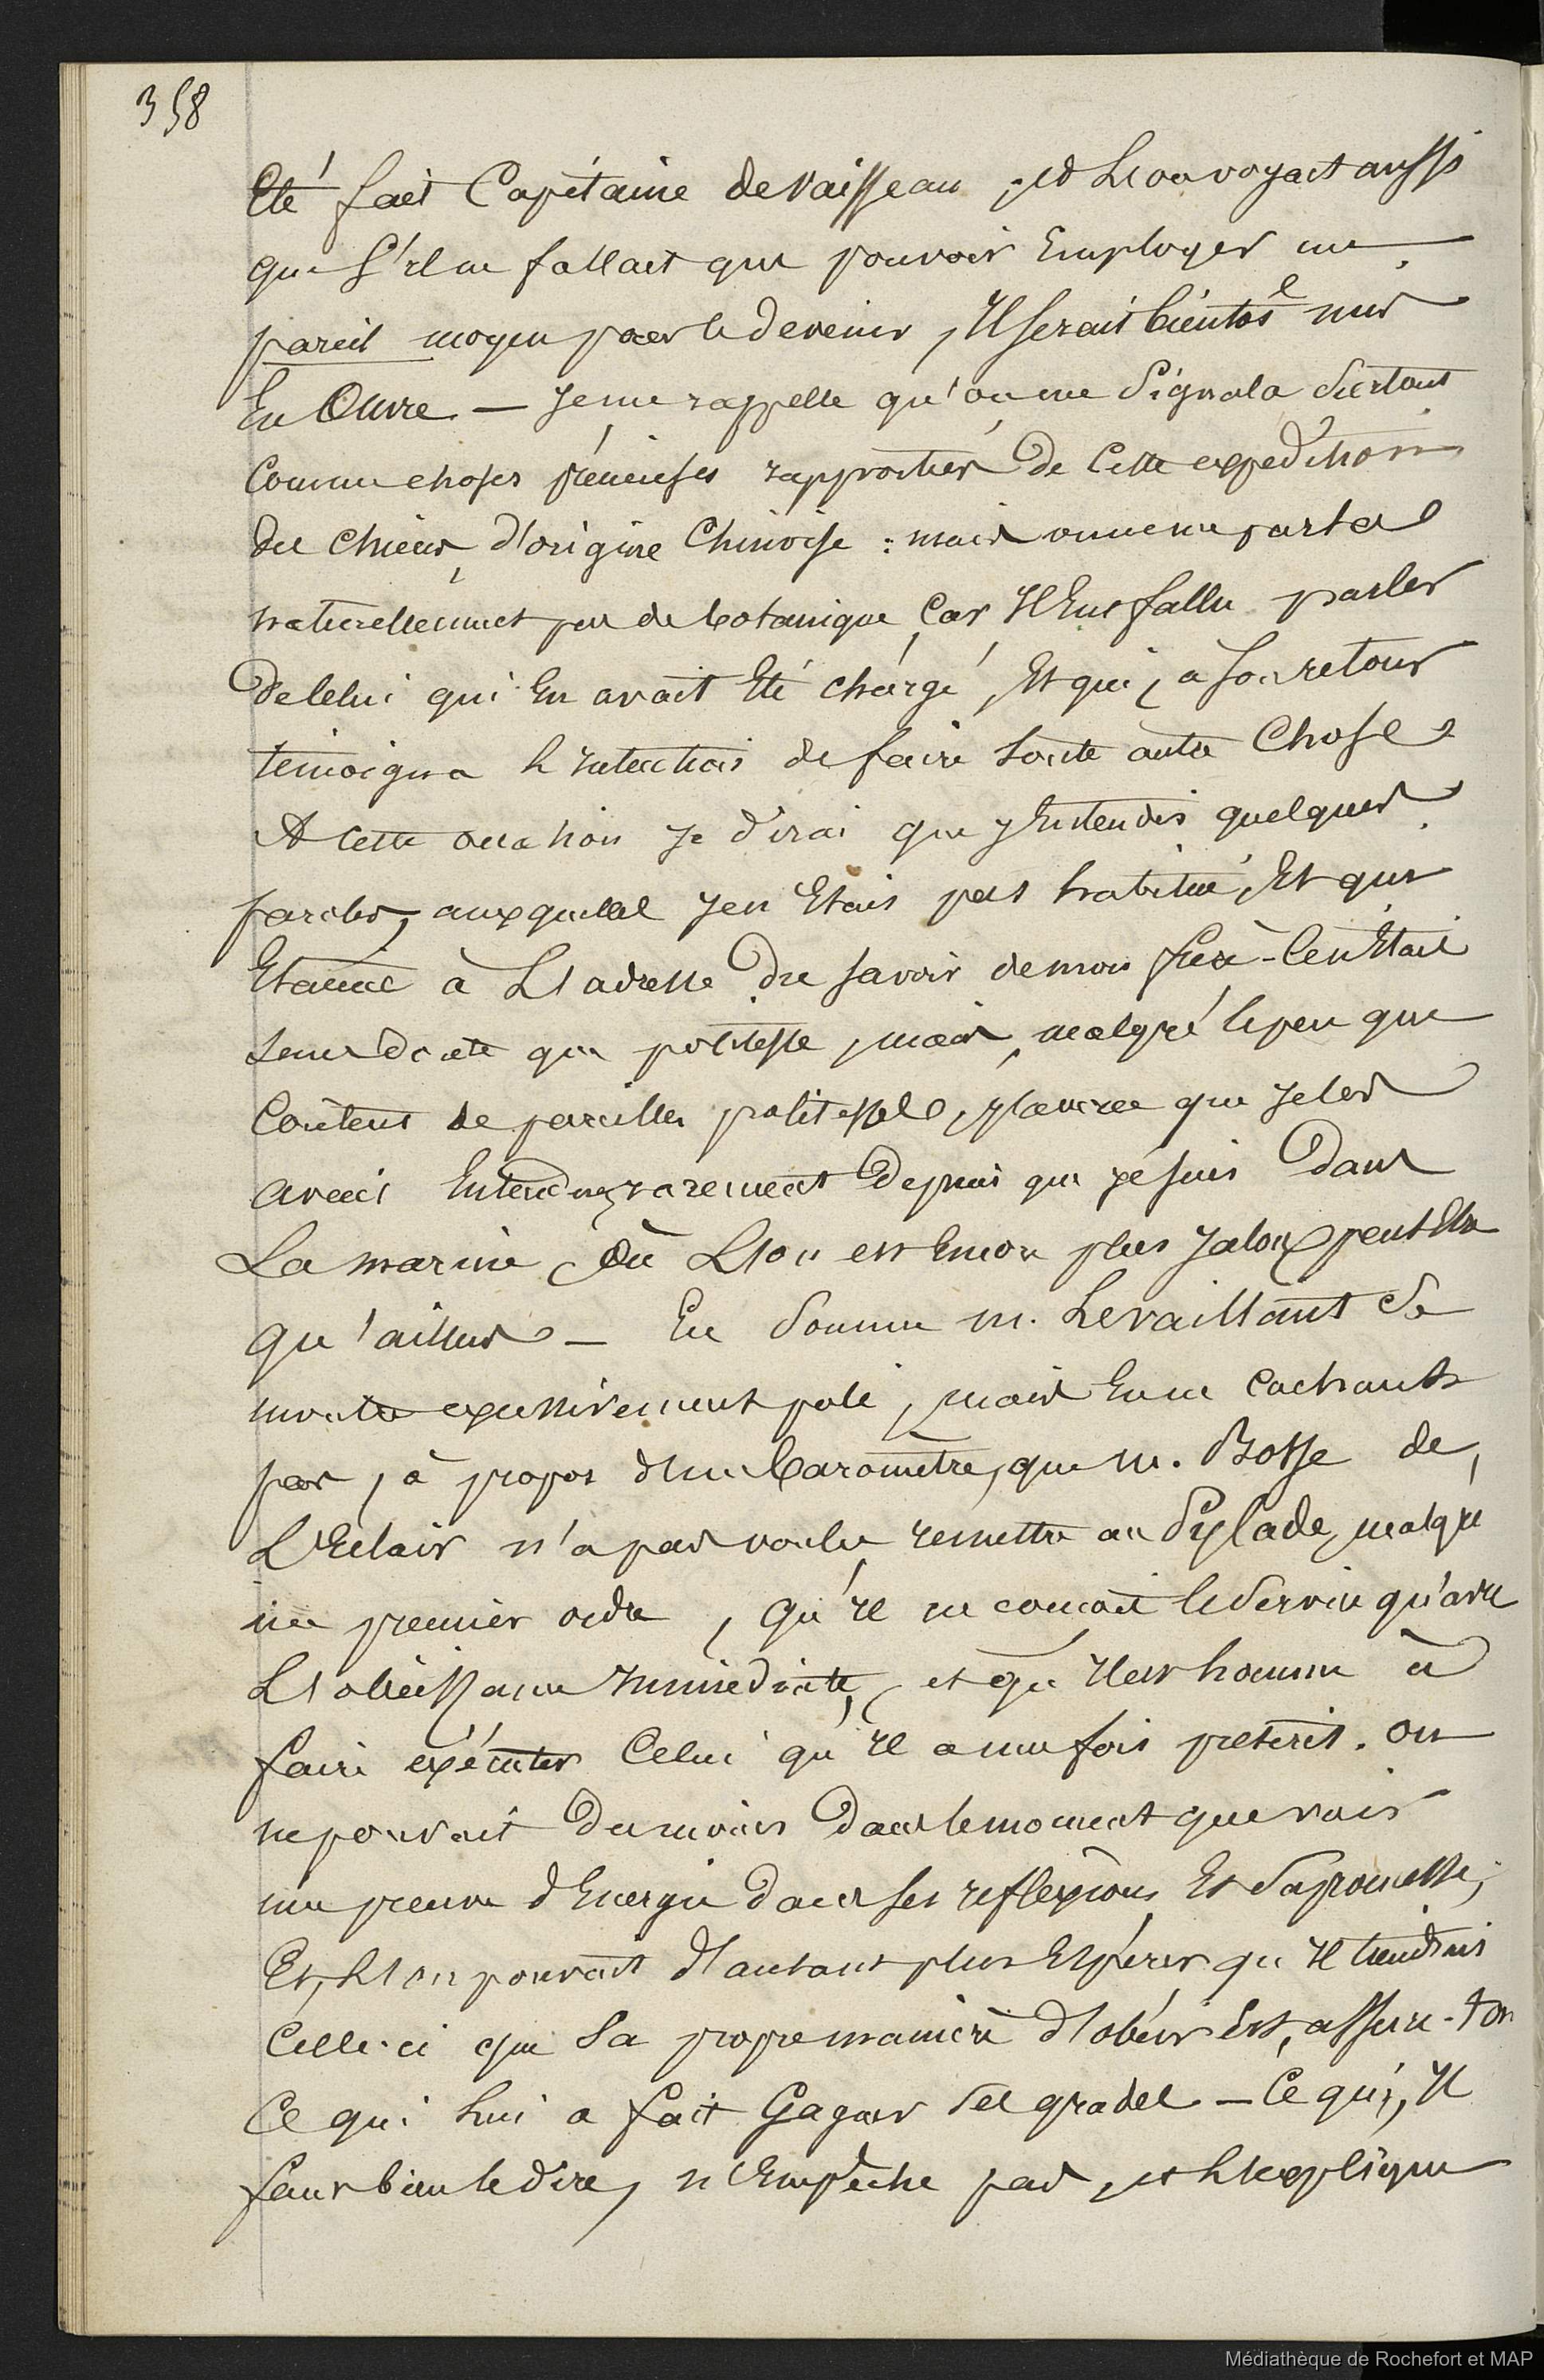 358
Eté fait Capitaine de vaisseau, et L'on voyait aussi
que s'il ne fallait que pouvoir Employer un
pareil moyen pour le devenir, Il serait bientôt mis
En Œuvre — Je me rappelle qu'on me Signala Surtout
Comme choses précieuses rapportées De Cette expedition
des chiens, d'origine Chinoise : mais on ne me parla
naturellement pas de botanique, Car, Il Eut fallu parler
De Celui qui En avait Eté chargé, Et qui, à son retour
temoigna L'Intention de faire toute autre Chose
A cette occasion Je dirai que J'Entendis quelques
paroles, auxquelles Je n'Etais pas habitué, Et qui
Etaient à L'adresse Du savoir de mon frère - Ce n'Etait
sans doute que politesse, mais, malgré le peu que
Coutent de pareilles politesses, J'avoue que Je les
avais Entendues rarement Depuis que je suis Dans
La marine, Où L'on est Encore plus Jaloux peut Etre
qu'ailleurs — En Somme M. Levaillant Se
montra excessivement poli, mais En ne cachant
pas, à propos d'un barometre, que M. Bosse de
L'Eclair n'a pas voulu remettre au Pylade, malgré
un premier ordre, qu'Il ne connait le Service qu'avec
L'obeissance Immediate, et qu'Il est homme à
faire exécuter Celui qu'Il a une fois prescrit. On
ne pouvait Du moins Dans le moment que voir
une preuve d'Energie Dans ses reflexions Et Sa promesse,
Et, L'on pouvait d'autant plus Espérer qu'Il tiendrait
Celle-ci que Sa propre manière d'obéir Est, assure-t-on
Ce qui Lui a fait Gagner Ses grades — Ce qui, Il
faut bien le dire, n'Empêche pas, et L'explique